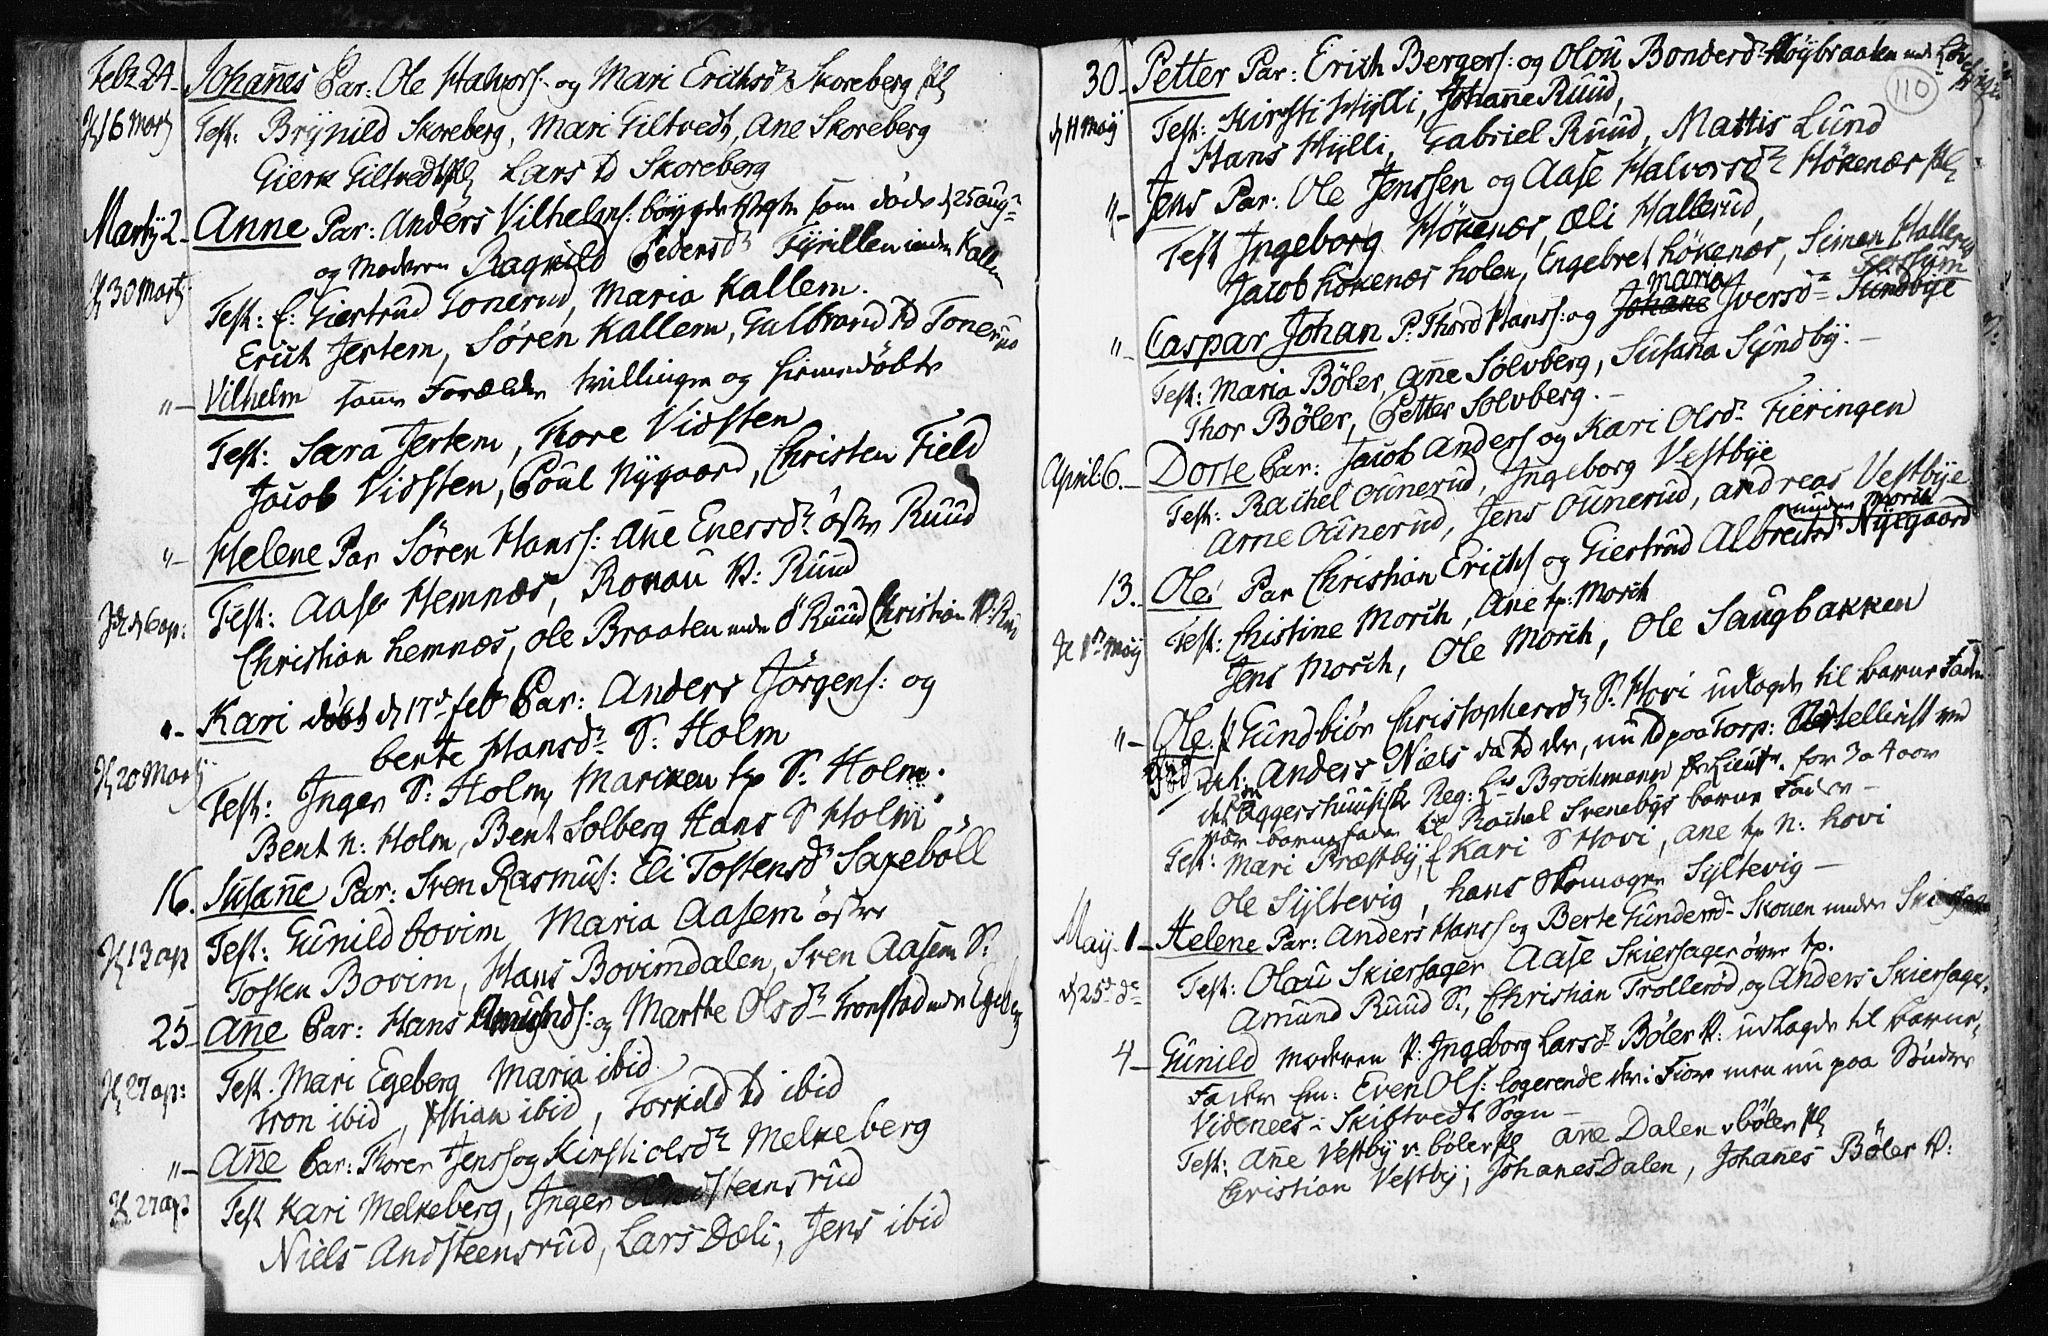 Febr 24 - Johan̄es Par: Ole Halvors: og Mari Erichsdr Skoreberg pl
16 Marty Test: Brynild Skoreberg, Mari Giltvedt, Ane Skoreberg
Gierk Giltvedt pl Lars td Skoreberg
Marty 2 - Anne Par: Anders Vilhelms: som døde d 25 aug
og Moderen Ragnild Pedersdr Fyrillen under Kallem
30 Marty Test: f: Giertrud Tonerud, Maria Kallem.
Erich Jertem, Søren Kallem, Gulbrand td Tonerud
" - Vilhelm samme Forældre tvillinger og hiemedøbte
Test: Sara Jertem, Kore Vidsten
Jacob Vidsten, Poul Nygaard, Christen Field
" - Helene Par Søren Hanss: An̄e Enersdr østre Ruud
d 6 ap: Test: Aase Hemnæs, Ronau V: Ruud
Christian hemnæs, Ole Braaten under Ø Ruud Christian V: Ruud
" - Kari døbt d 17d feb Par: Anders Jørgens: og
berte Hansdr S: Holm
20 Marty Test: Inger S: Holm, Mariken tp S: Holm.
Bent n: Holm, Bent Solberg Hans S Holm
16. Susan̄e Par: Sven Rasmus: Eli Tostensdr Saxebøll
13 ap Test: Gunild bovim Maria Aasem østre
Tosten Bovim, Hans Bovimdalen, Sven Aasem S:
25 - An̄e Par: Hans Amunds: og Marthe Olsdr Tronstad under Egeberg
27 ap: Test. Mari Egeberg Maria ibid.
tron ibid, Stian ibid, Torkild td ibid
" - An̄e Par: Thorer Jenss og Kirsti olsdr Melkeberg
27 ap: Test Kari Melkeberg, Inger Andsteensrud
Niels Andsteensrud, Lars Dæli, Jens ibid
110
30 - Petter Par: Erich Bergers: og Olou Bondersdr Høybraaten under
d 11 May Test: Kirsti Hylli, Johan̄e Ruud,
Hans Hylli, Gabriel Ruud, Mattis Lund
" - Jens Par: Ole Jenssen og Aase Halvorsdr Høkenær pl
Test Ingeborg Høkenær, Æli Hallerud,
Jacob høkenær holen, Engebret høkenær, Simen Hallerud
" - Caspar Johan P: Thord Hanss: og Johane Maria Iversdr Sundbye
Test: Maria Bøler, An̄e Sølvberg, Susana Sundby. -
Thor Bøler, Petter Solvberg. -
April 6. - Dorte Par: Jacob Anders og Kari Olsdr Fieringen
Test: Rachel Ounerud, Ingeborg Vestbye
Arne Ounerud, Jens Ounerud, Andreas Vestbye
under Morch
13. - Ole Par Christian Erichs og Giertrud Albreitsdr Nygaard
May Test: Christine Morch, Ane tp: Morch
Jens Morch, Ole Morch, Ole Saugbakken
" - Ole: P Gundbiør Christophersdr S: Hovi udlagde til barne Fader
Anders Niels da td der, nu td paa Torp:
Aggershuusiske Reg: Brochmann for 3 a 4 aar
var barnefader til Rachel Svenebys barne Fader -
Test: Mari Præstby, f Kari S Hovi, Ane tp n: hovi
Ole Syltevig, hans Skomager Syltevig -
May - 1 - Helene Par: Anders Hanss og Berte Gundersdr Skouen under
d 25d Test: Olau Skiersager Aase Skiersager øvre tp.
Amund Ruud S:, Christian Trollerød, og Anders Skiersager.
4 - Gunild Moderen P: Ingeborg Larsdr Bøler V: udlagde til barne-
Fader Em: Even Ols: logerende der i Fior men nu paa Søndre
Videnees i Skiftvedt Sogn -
Test: An̄e Vestby v: bøler pl An̄e Dalen v bøler pl
Christian Vestby, Johanes Dalen, Johan̄es Bøler V: